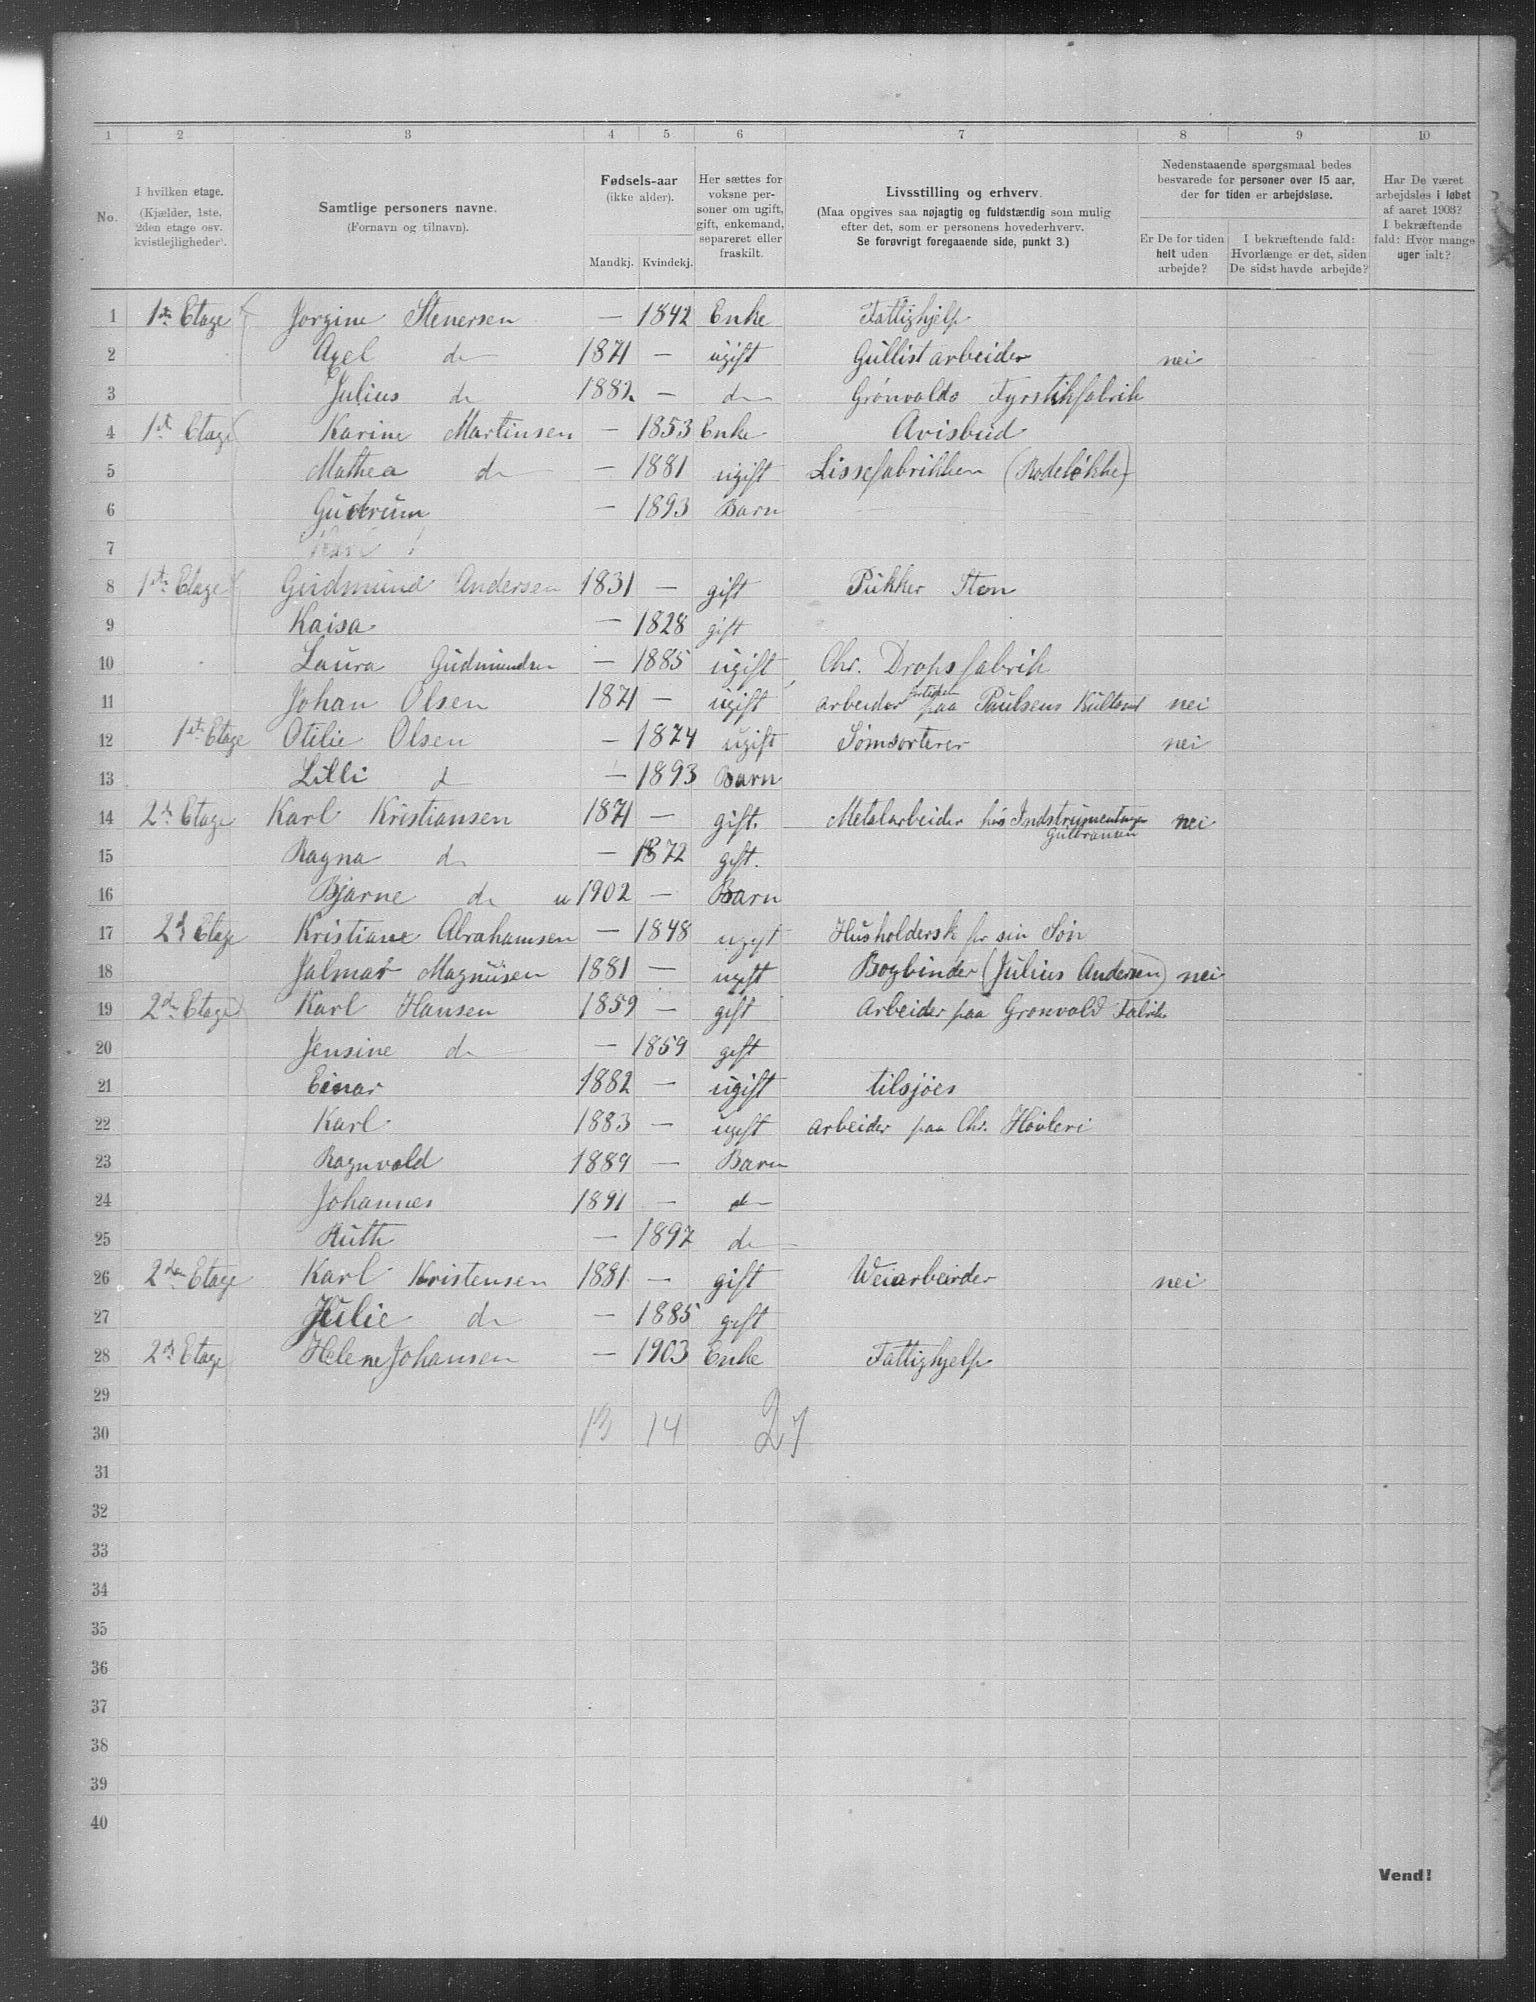 1 2 3 4 5 6 7 8 9 10
No.
I hvilken etage.
(Kjælder, 1ste,
2den etage osv.
kvistlejligheder).
Samtlige personers navne.
(Fornavn og tilnavn).
Fødsels-aar
(ikke alder).
Mandkj. Kvindekj.
Her sættes for
voksne per-
soner om ugift,
gift, enkemand,
separeret eller
fraskilt.
Livsstilling og erhverv.
(Maa opgives saa nøjagtig og fuldstændig som mulig
efter det, som er personens hovederhverv.
Se forøvrigt foregaaende side, punkt 3.)
Nedenstaaende spørgsmaal bedes
besvarede for personer over 15 aar,
der for tiden er arbejdsløse.
Er De for tiden
helt uden
arbejde?
I bekræftende fald:
Hvorlænge er det, siden
De sidst havde arbejde?
Har De været
arbejdsløs i løbet
af aaret 1903?
I bekræftende
fald: Hvor mange
uger ialt?
1 1ste Etage Jorgine Stenersen — 1842 Enke Fattighjelp
2 Axel do 1871 — ugift Gullistarbeider nei
3 Julius do 1882 — do Grönvolds Fyrstikfabrik
4 1st Etage Karine Martinsen — 1853 Enke Avisbud
5 Mathea do — 1881 ugift Lissefabrikken (Rodeløkken)
6 Gudrun — 1893 Barn
7
8 1ste Etage Gudmund Andersen 1831 — gift Pukker Sten
9 Kaisa — 1828 gift
10 Laura Gudmundsen — 1885 ugift Chr. Dropsfabrik
11 Johan Olsen 1871 — ugift arbeider fortiden paa Paulsens Kultomt nei
12 1ste Etage Otilie Olsen — 1874 ugift Sömsorterer nei
13 Lilli d — 1893 Barn
14 2den Etage Karl Kristiansen 1871 — gift. Metalarbeider hos Indstrumentmager Gulbransen nei
15 Ragna do — 1872 gift.
16 Bjarne do u 1902 — Barn
17 2d Etage Kristiane Abrahamsen — 1848 ugift Husholdersk for sin Sön
18 Jalmar Magnusen 1881 — ugift Bogbinder (Julius Andersen) nei
19 2den Etage Karl Hansen 1859 — gift Arbeider paa Gronvold Fabrik
20 Jensine do — 1859 gift
21 Einar 1882 — ugift tilsjöes
22 Karl 1883 — ugift arbeider paa Chr. Hövleri
23 Ragnvald 1889 — Barn
24 Johannes 1891 — do
25 Ruth — 1897 do
26 2den Etage Karl Kristensen 1881 — gift Weiarbeider nei
27 Julie do — 1885 gift
28 2den Etage Helene Johansen — 1903 Enke Fattighjelp
29
30 13 14 27
31
32
33
34
35
36
37
38
39
40
Vend!